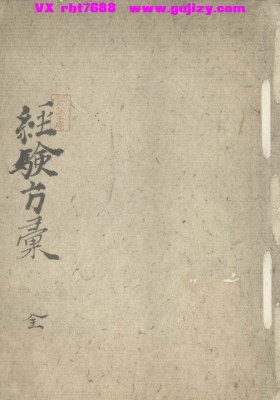 VX rbt7688 www.gujizy.com
經驗方彙
全